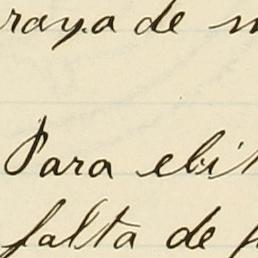 raya de
Para ebit
falta de